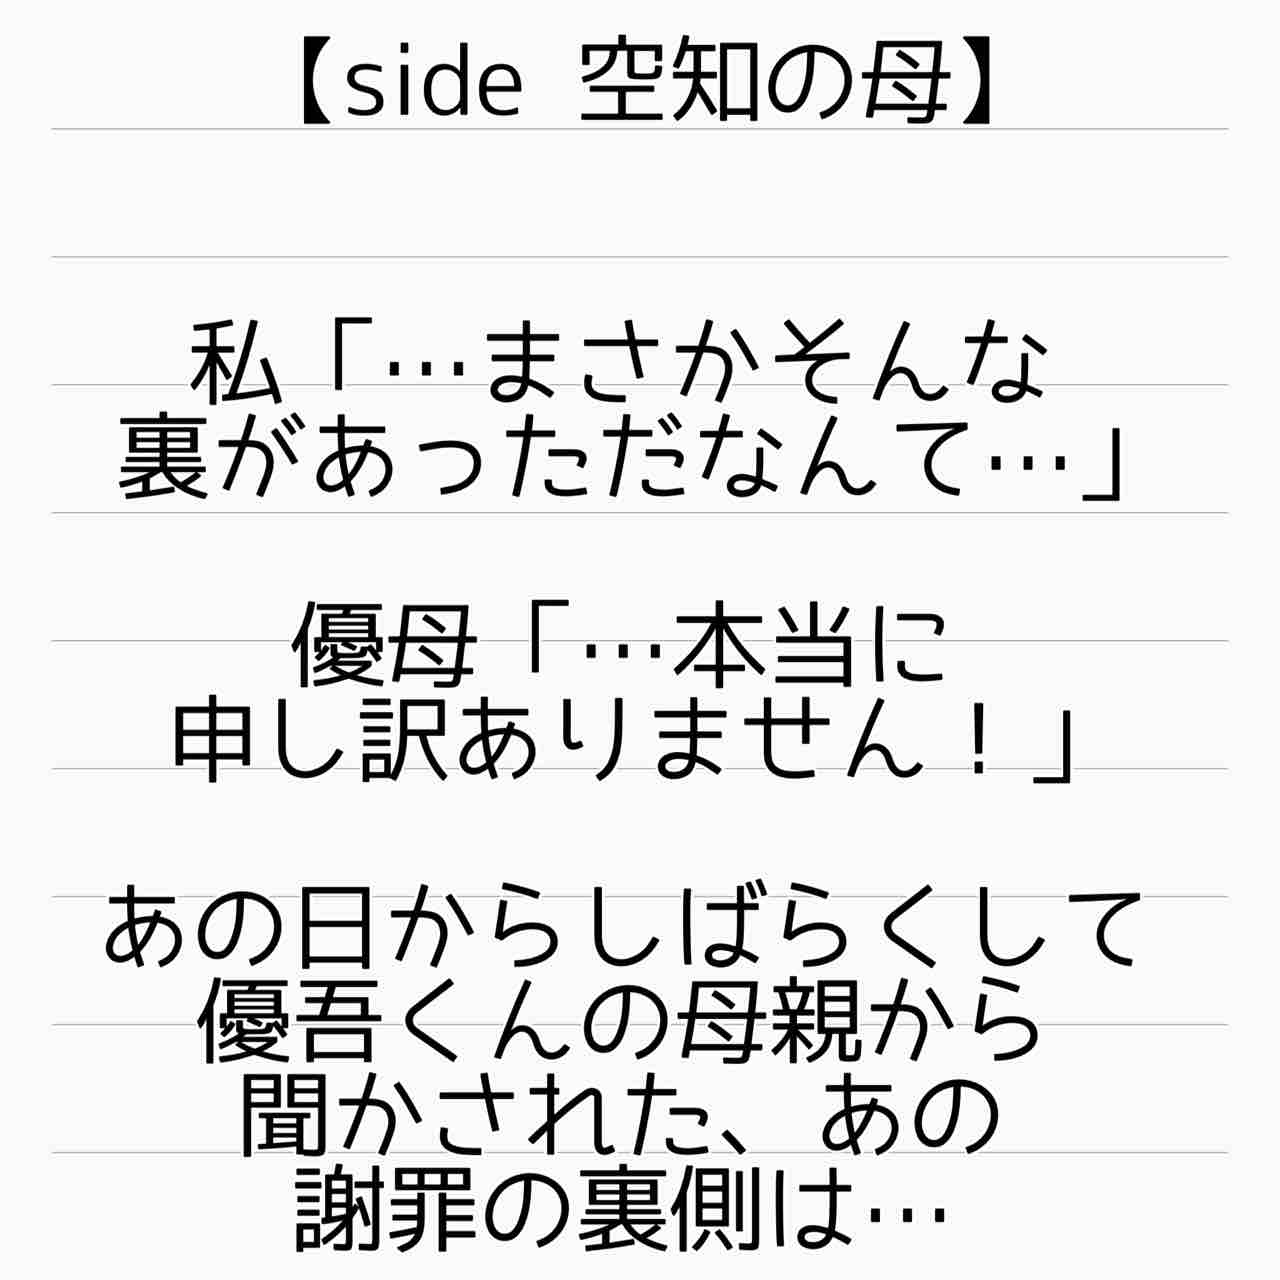 【side 空知の母】
私「…まさかそんな
裏があっただなんて…」
優母「…本当に
申し訳ありません！」
あの日からしばらくして
優吾くんの母親から
聞かされた、あの
謝罪の裏側は…